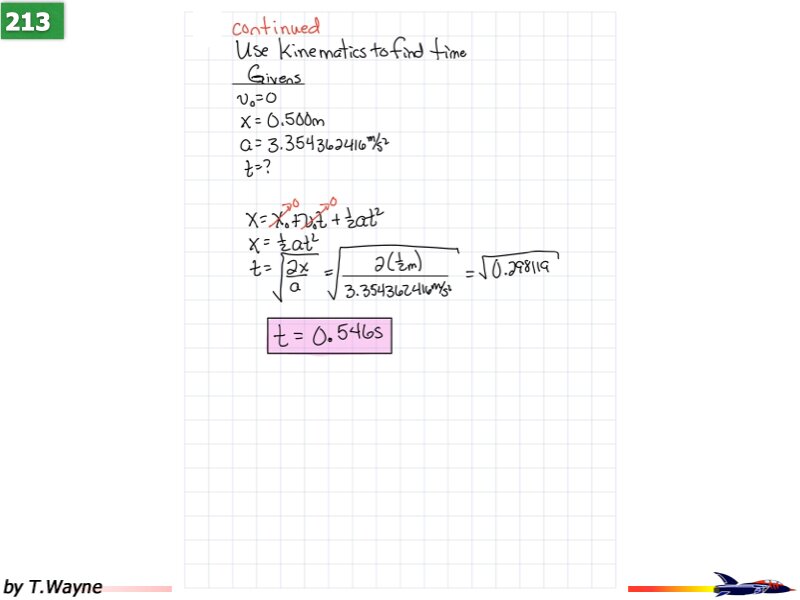 213
continued
Use Kinematics to find time
Givens
v₀=0
x = 0.500m
a = 3.354362416 m/s²
t=?
x = x₀ + v₀t + ½at²
0 0
x = ½at²
t = √(2x/a) = √(2(½m)/3.354362416 m/s²) = √0.298119
t = 0.546s
by T.Wayne